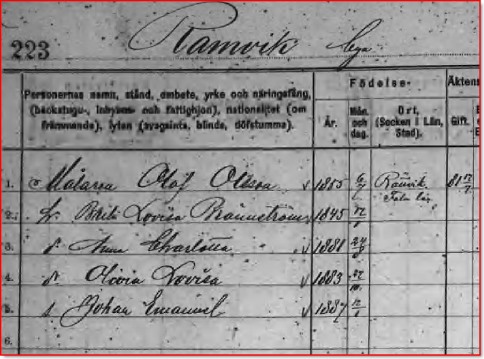 223 Ramvik by
Födelse- Äktens
Personernas namn, stånd, embete, yrke och näringsfång,
(backstugu-, inhyses- och fattighjon), nationalitet (om
främmande), lyten (svagsinta, blinda, döfstumma).
År. Mån. och dag. Ort, (Socken i Län, Stad). Gift.
1. Målaren Olof Olsson 1855 Ramvik 81
2. h. Brita Lovisa Brännström 1845
3. d. Anna Charlotta 1881
4. d. Olivia Lovisa 1883
5. s. Johan Emanuel 1887
6.